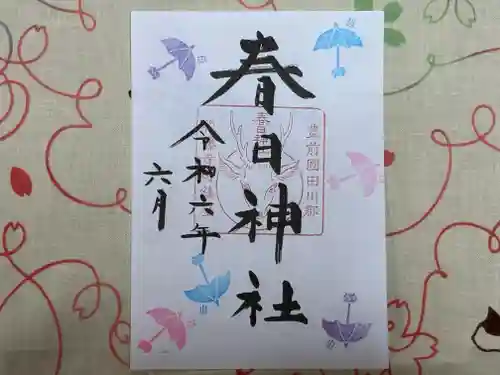 豊前國田川郡
春日神社
令和六年
六月